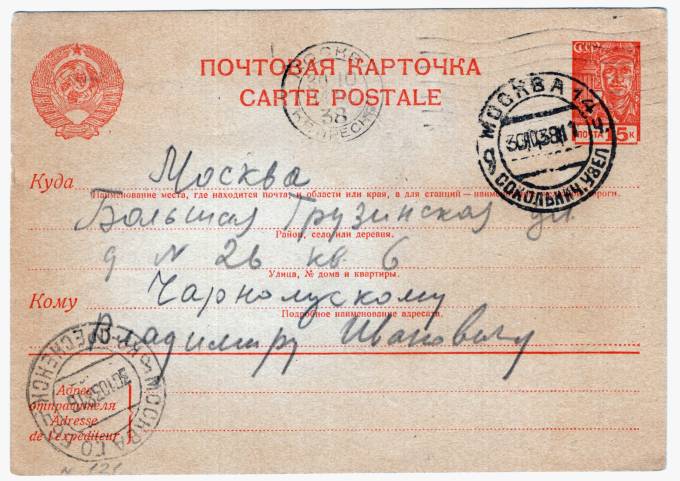 ПОЧТОВАЯ КАРТОЧКА
CARTE POSTALE
СССР
ПОЧТА 15 К
МОСКВА 10 38
МОСКВА 149
30.10.38 11
СОКОЛЬНИЧ. УЗЕЛ
Куда Москва
Наименование места, где находится почта, и области или края, а для станций — наименование
Большая Грузинская ул
Район, село или деревня.
д N 26 кв 6
Улица, № дома и квартиры.
Кому Чарнолускому
Подробное наименование адресата.
Владимиру Ивановичу
Адрес
отправителя
Adresse
de l'expéditeur
МОСКВА